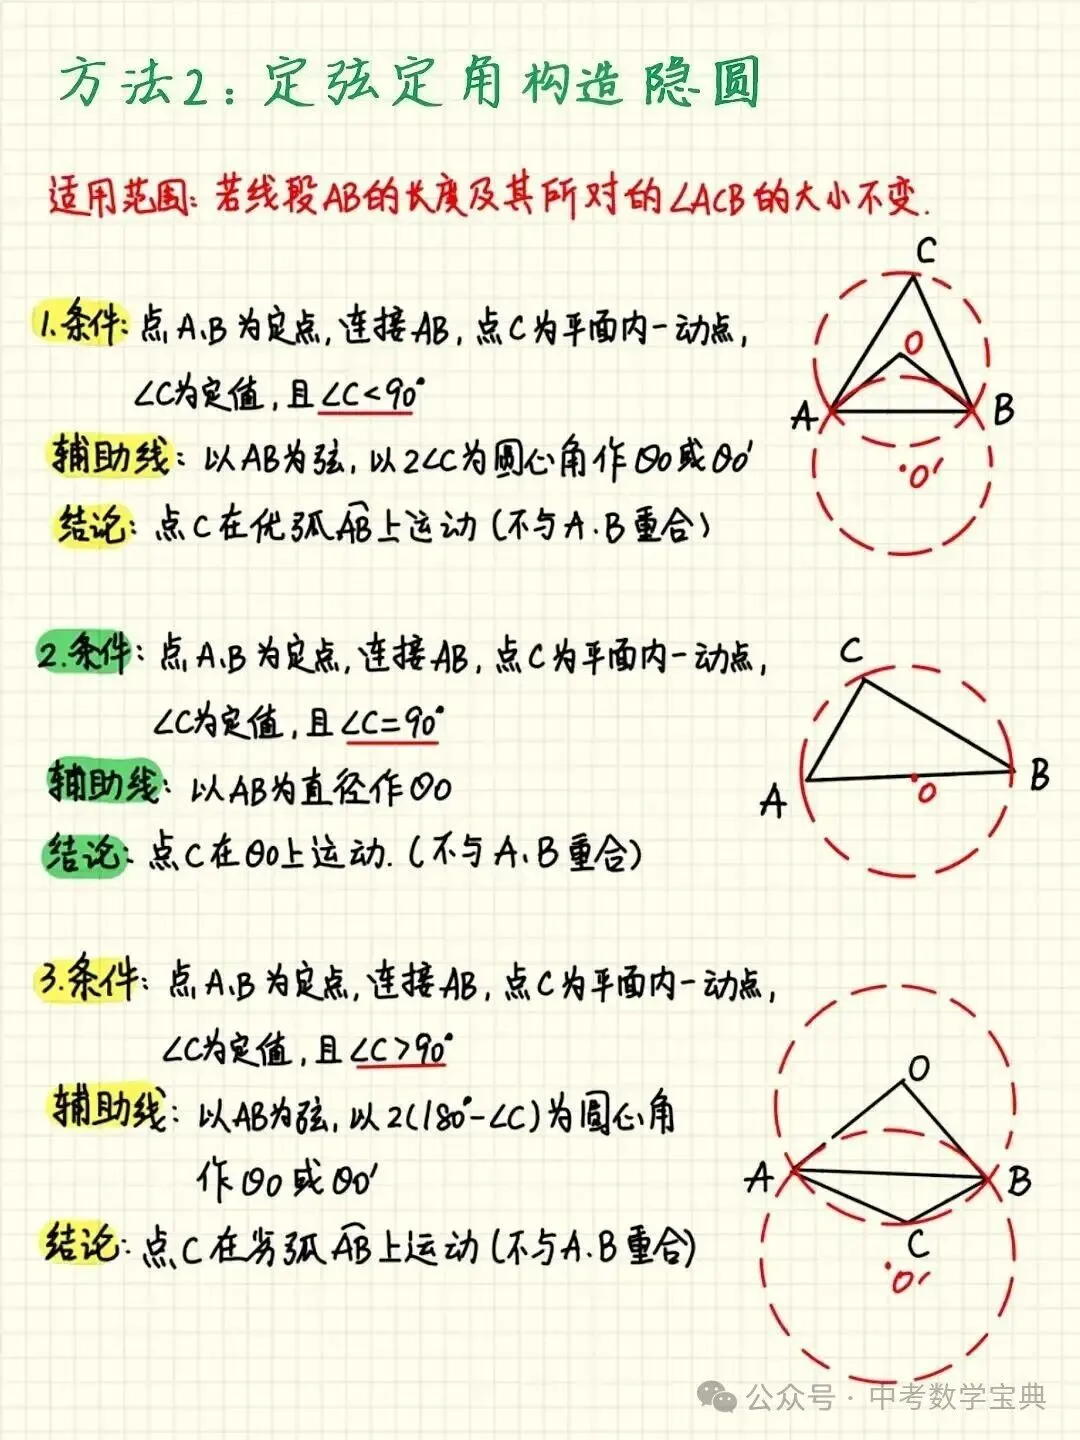 方法2：定弦定角构造隐圆
适用范围：若线段AB的长度及其所对的∠ACB的大小不变.
1.条件：点A、B为定点，连接AB，点C为平面内一动点，
∠C为定值，且∠C<90°
辅助线：以AB为弦，以2∠C为圆心角作⊙O或⊙O′
结论：点C在优弧AB上运动(不与A.B重合)
C
O
A
B
O′
2.条件：点A、B为定点，连接AB，点C为平面内一动点，
∠C为定值，且∠C=90°
辅助线：以AB为直径作⊙O
结论：点C在⊙O上运动.(不与A、B重合)
C
A
O
B
3.条件：点A、B为定点，连接AB，点C为平面内一动点，
∠C为定值，且∠C>90°
辅助线：以AB为弦，以2(180°-∠C)为圆心角
作⊙O或⊙O′
结论：点C在劣弧AB上运动(不与A.B重合)
O
A
B
C
O′
公众号·中考数学宝典